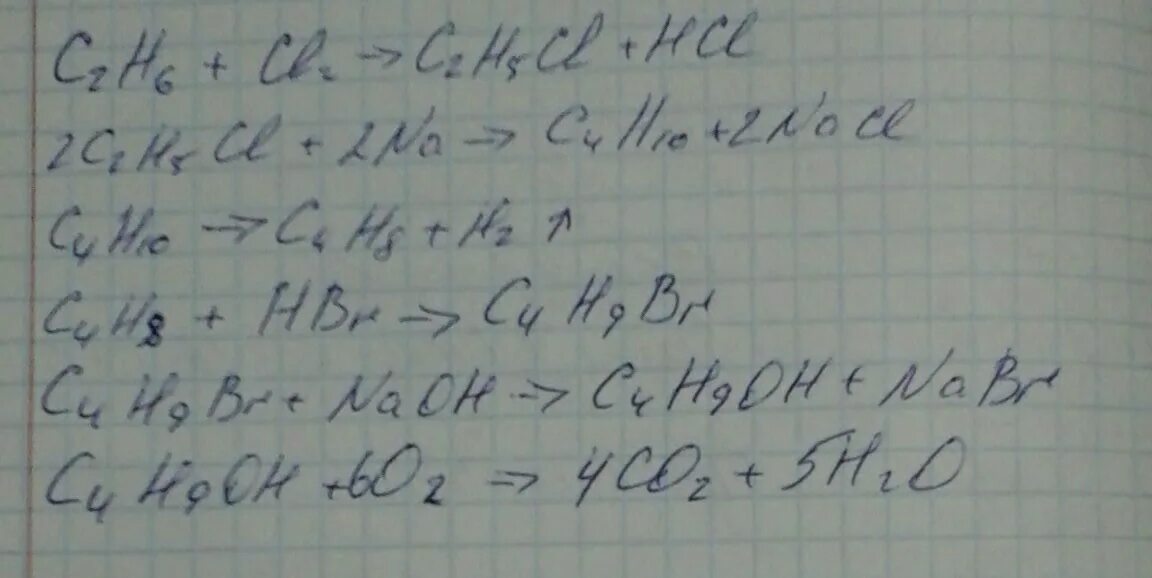 C₂H₆ + Cl₂ → C₂H₅Cl + HCl
2C₂H₅Cl + 2Na → C₄H₁₀ + 2NaCl
C₄H₁₀ → C₄H₈ + H₂ ↑
C₄H₈ + HBr → C₄H₉Br
C₄H₉Br + NaOH → C₄H₉OH + NaBr
C₄H₉OH + 6O₂ → 4CO₂ + 5H₂O